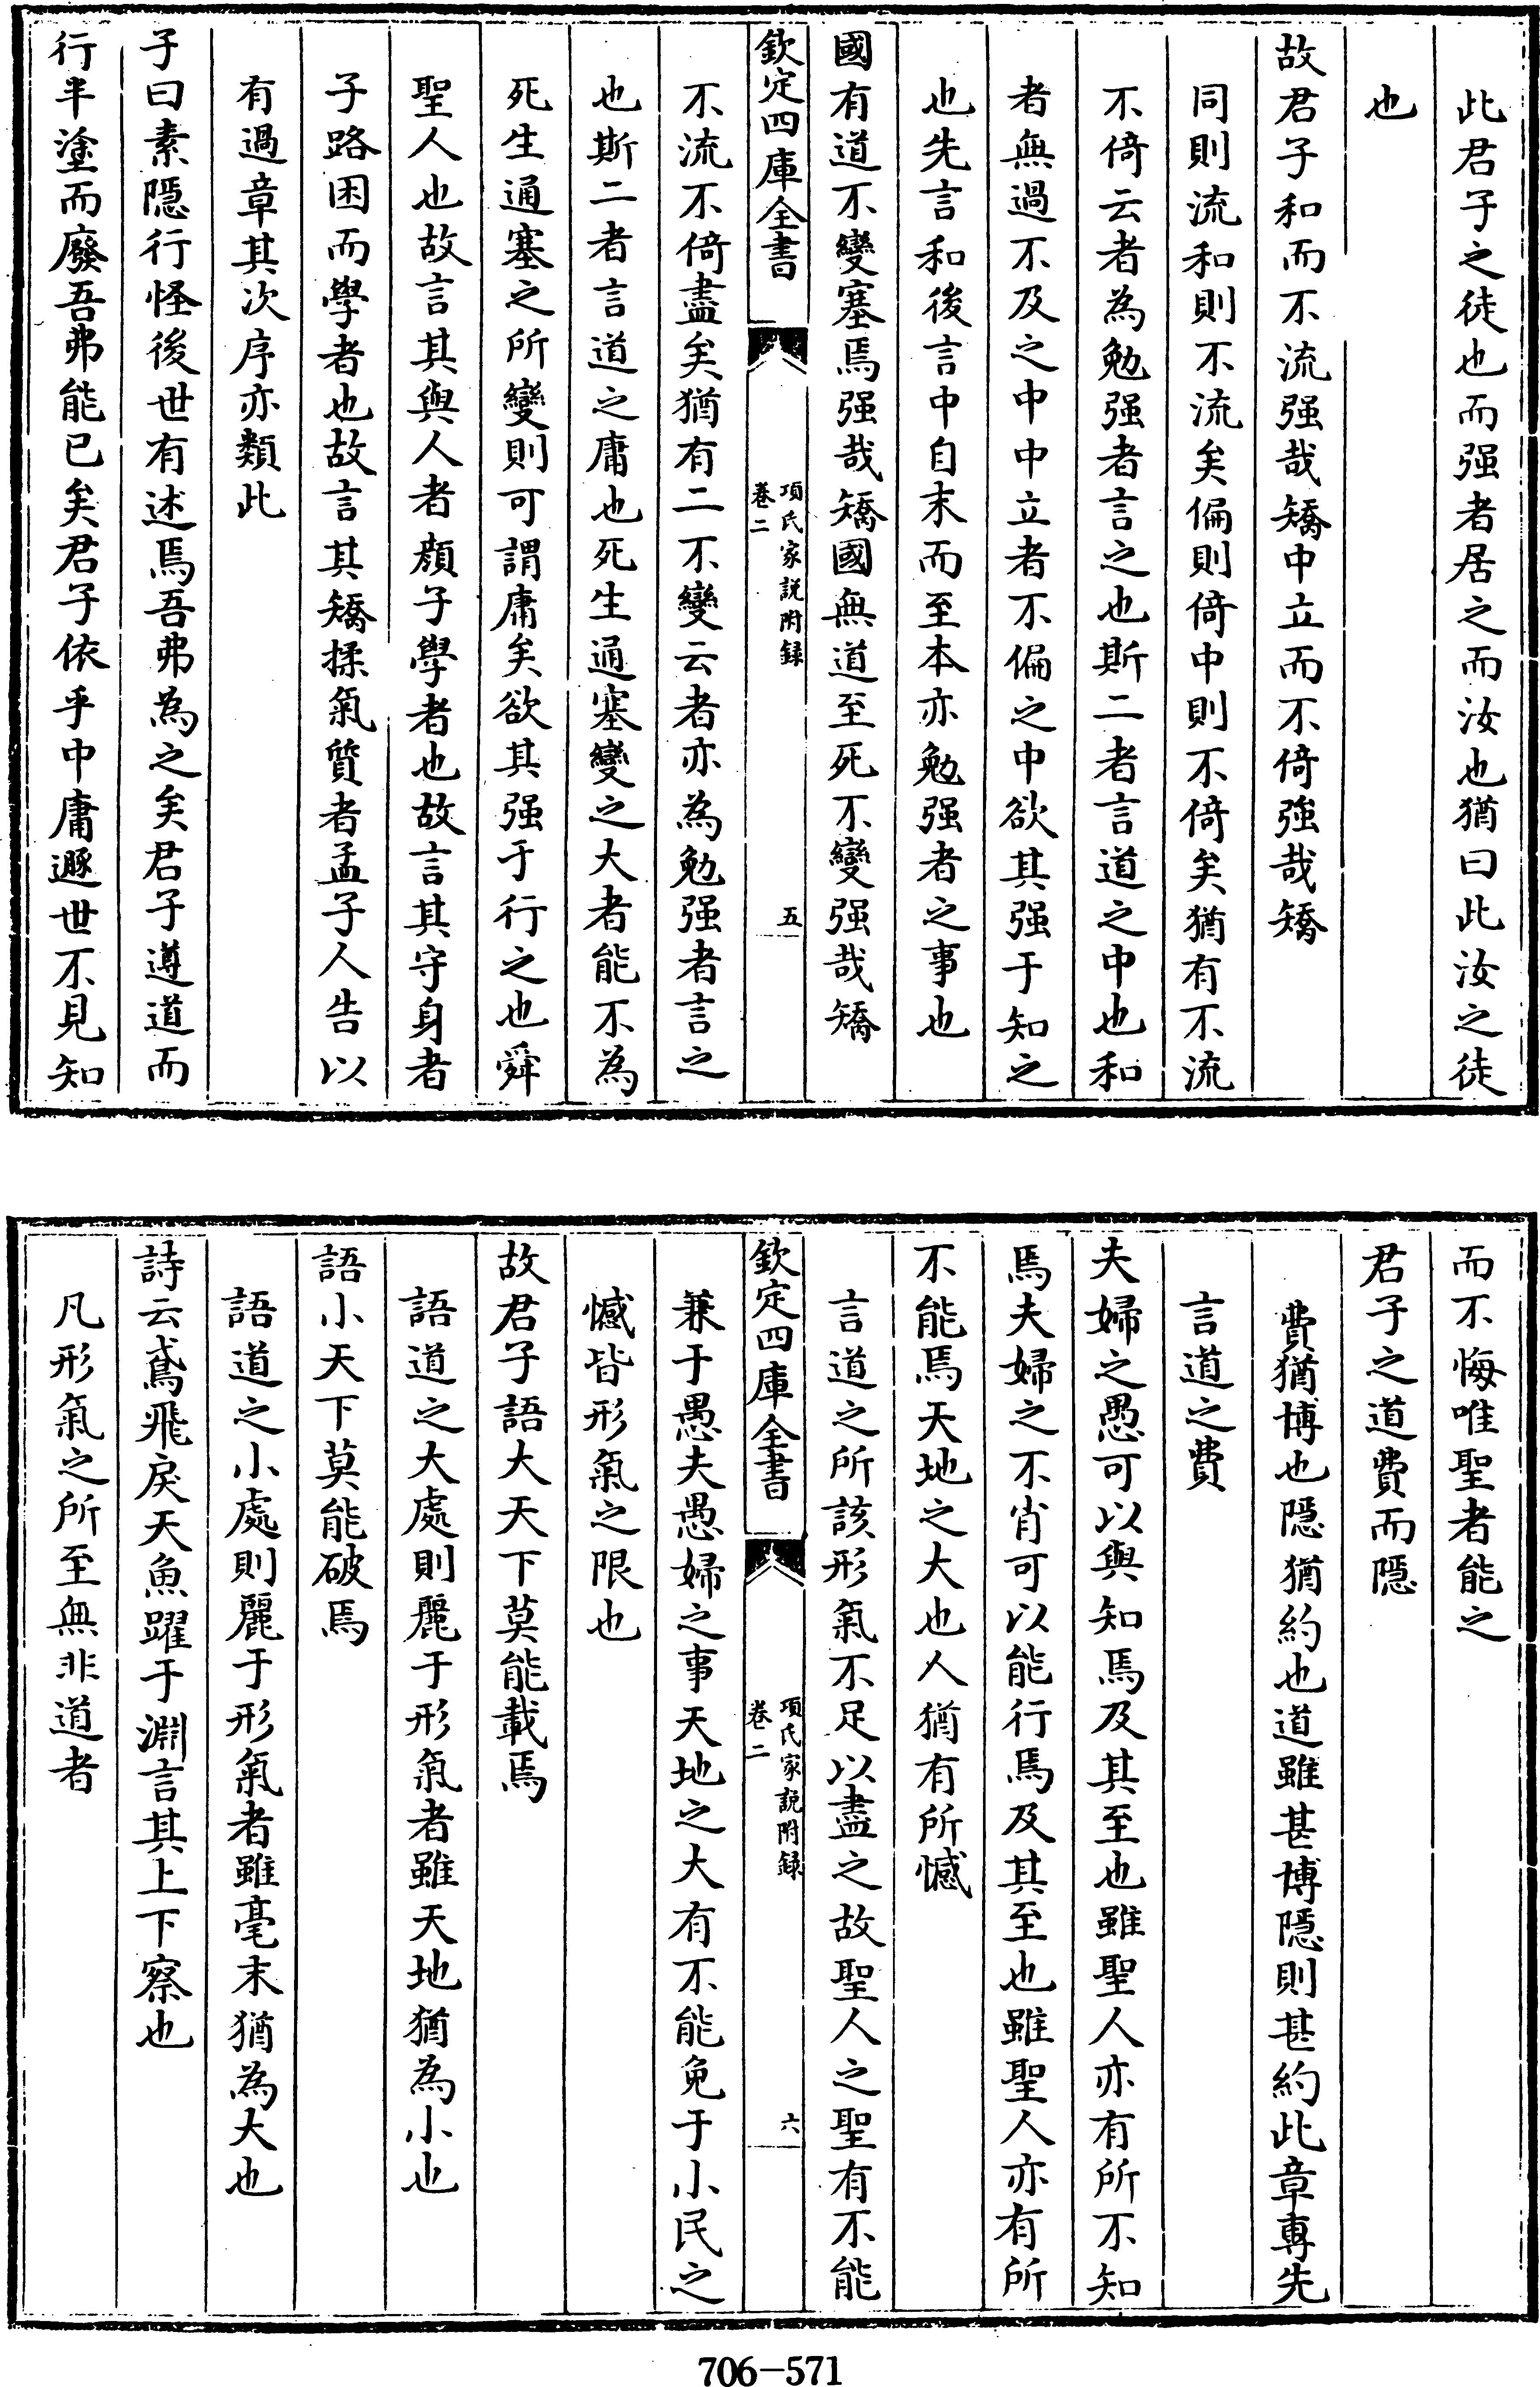 此君子之徒也而强者居之而汝也猶曰此汝之徒
也
故君子和而不流强哉矯中立而不倚強哉矯
同則流和則不流矣偏則倚中則不倚矣猶有不流
不倚云者為勉强者言之也斯二者言道之中也和
者無過不及之中中立者不偏之中欲其强于知之
也先言和後言中自末而至本亦勉强者之事也
國有道不變塞焉强哉矯國無道至死不變强哉矯
欽定四庫全書
項氏家説附録
卷二
五
不流不倚盡矣猶有二不變云者亦為勉强者言之
也斯二者言道之庸也死生通塞變之大者能不為
死生通塞之所變則可謂庸矣欲其强于行之也舜
聖人也故言其與人者顔子學者也故言其守身者
子路困而學者也故言其矯揉氣質者孟子人告以
有過章其次序亦類此
子曰素隱行怪後世有述焉吾弗為之矣君子遵道而
行半塗而廢吾弗能已矣君子依乎中庸遯世不見知
而不悔唯聖者能之
君子之道費而隱
費猶博也隱猶約也道雖甚博隱則甚約此章專先
言道之費
夫婦之愚可以與知焉及其至也雖聖人亦有所不知
焉夫婦之不肖可以能行焉及其至也雖聖人亦有所
不能焉天地之大也人猶有所憾
言道之所該形氣不足以盡之故聖人之聖有不能
欽定四庫全書
項氏家説附録
卷二
六
兼于愚夫愚婦之事天地之大有不能免于小民之
憾皆形氣之限也
故君子語大天下莫能載焉
語道之大處則麗于形氣者雖天地猶為小也
語小天下莫能破焉
語道之小處則麗于形氣者雖毫末猶為大也
詩云鳶飛戾天魚躍于淵言其上下察也
凡形氣之所至無非道者
706-571